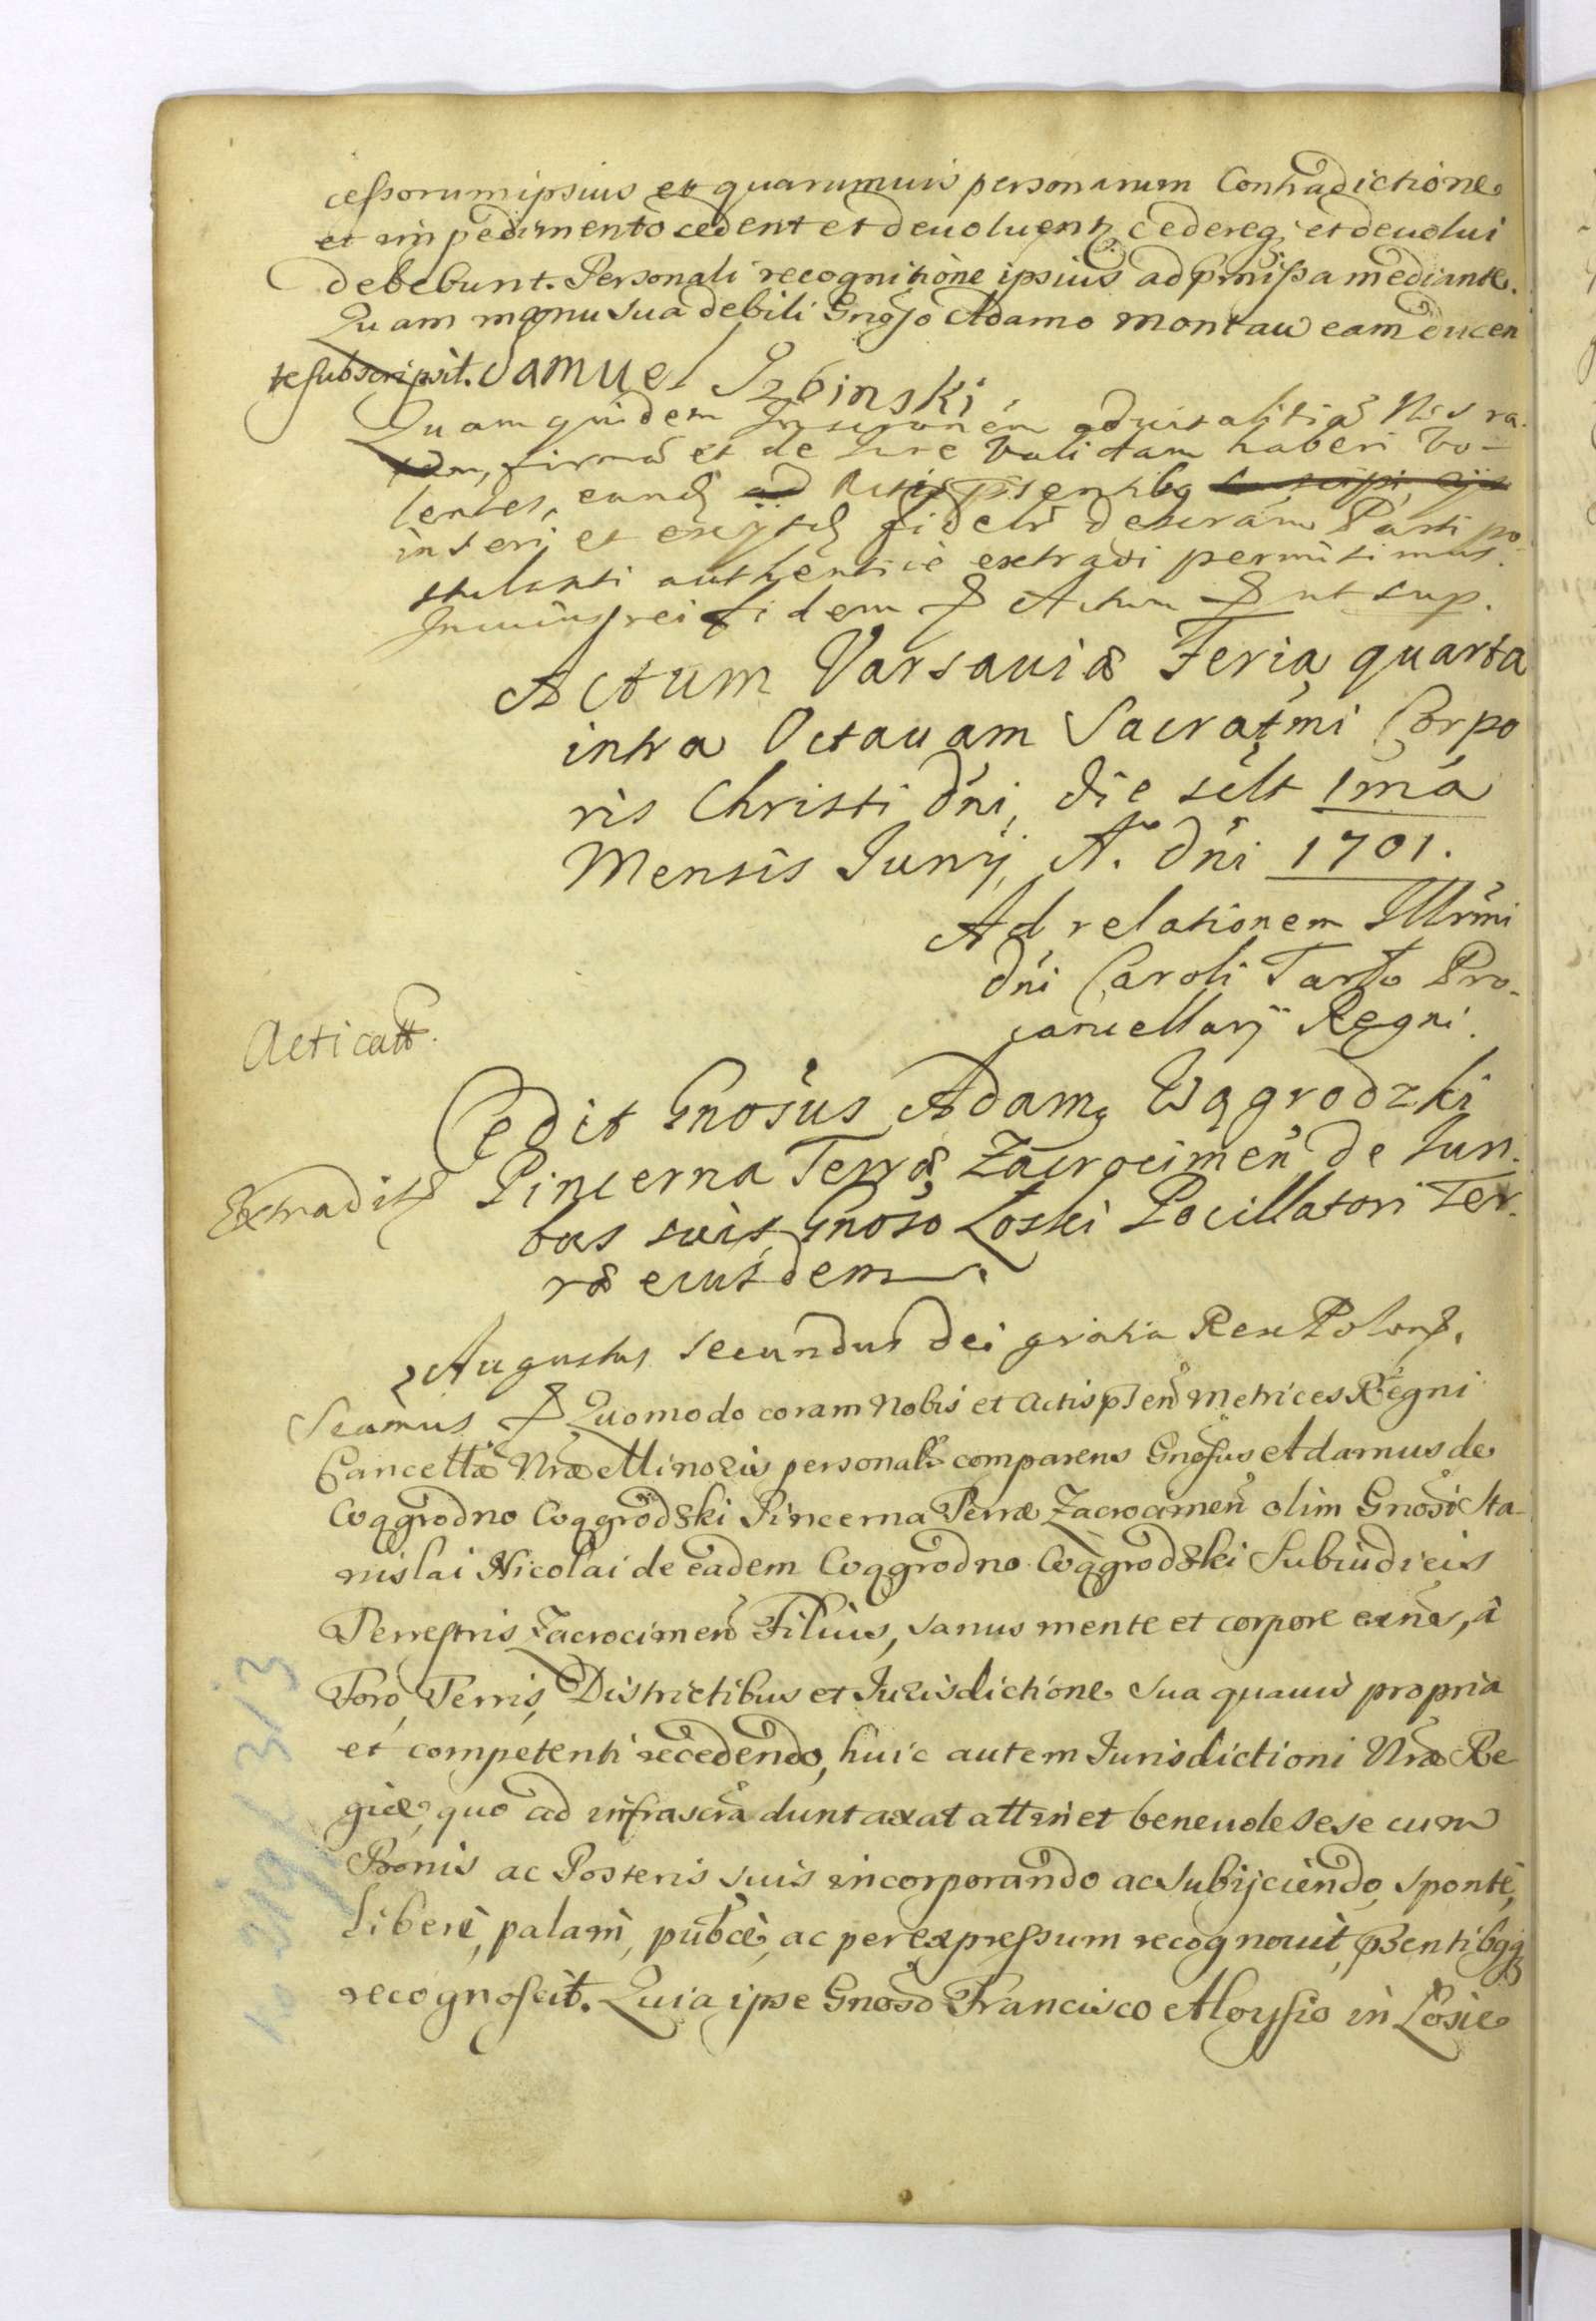 cessorum ipsius et quarumuis personarum Contradictione
et impedimento cedent et deuoluentꝫ cedereqꝫ et deuolui
debebunt. Personali recognitione ipsius ad pmissa mediante.
Quam manu sua debili Gnoso Adamo Montau eam ducen
te subscripsit. Samuel Izbinski
Quam quidem aduitalitiã ra
tam, firmã et de Iure Validam haberi vo-
lentes, eand ad Actis psentibꝫ
inseri et exijsd fideli descriam Parti po-
stulanti authentice extradi permittimus.
In cuius rei fidem & Actum & ut sup.
Actum Varsauiæ Feria quarta
intra Octauam Sacratmi Corpo
ris Christi Dni, die sclt 1ma
Mensis Iunij, Ao. Dni 1701.
Ad relationem Illrmi
Dni Caroli Tarło Pro-
cancellarij Regni.
Acticatt.
Cedit Gnosus Adamꝫ Wągrodzki
Extradit & Pincerna Terræ Zacrocimen de Iuri-
bus suis Gnoso Łoski Pocillatori Ter-
ræ eiusdem.
Augustus Secundus Dei gratia Rex Polon &.
Scamus & Quomodo coram Nobis et Actis psen Metrices Regni
Cancellæ Nræ Minoris personalr comparens Gnosus Adamus de
Wągrodno Wągrodzki Pincerna Terræ Zacrocimen olim Gnosi Sta-
nislai Nicolai de eadem Wągrodno Wągrodzki Subiudicis
Terrestris Zacrocimen Filius, sanus mente et corpore exñs, à
Foro, Terris, Districtibus et Iurisdictione sua quauis propria
et competenti recedendo, huic autem Iurisdictioni Nræ Re
giæ, quo ad infrascra duntaxat attinet beneuole sese cum
Bonis ac Posteris suis incorporando ac subijciendo, spontè,
liberè, palam, publcè, ac per expressum recognouit, psentibꝫqꝫ
recognoscit. Quia ipse Gnoso Francisco Aloysio in Łosie